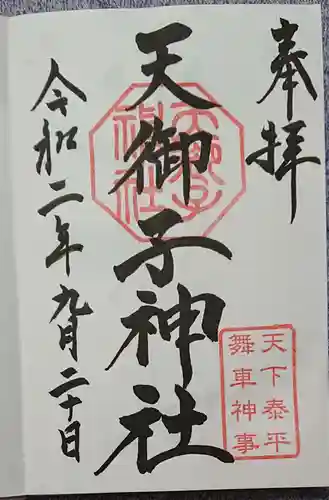 奉拝
天御子神社
令和二年九月二十日
天下泰平
舞車神事